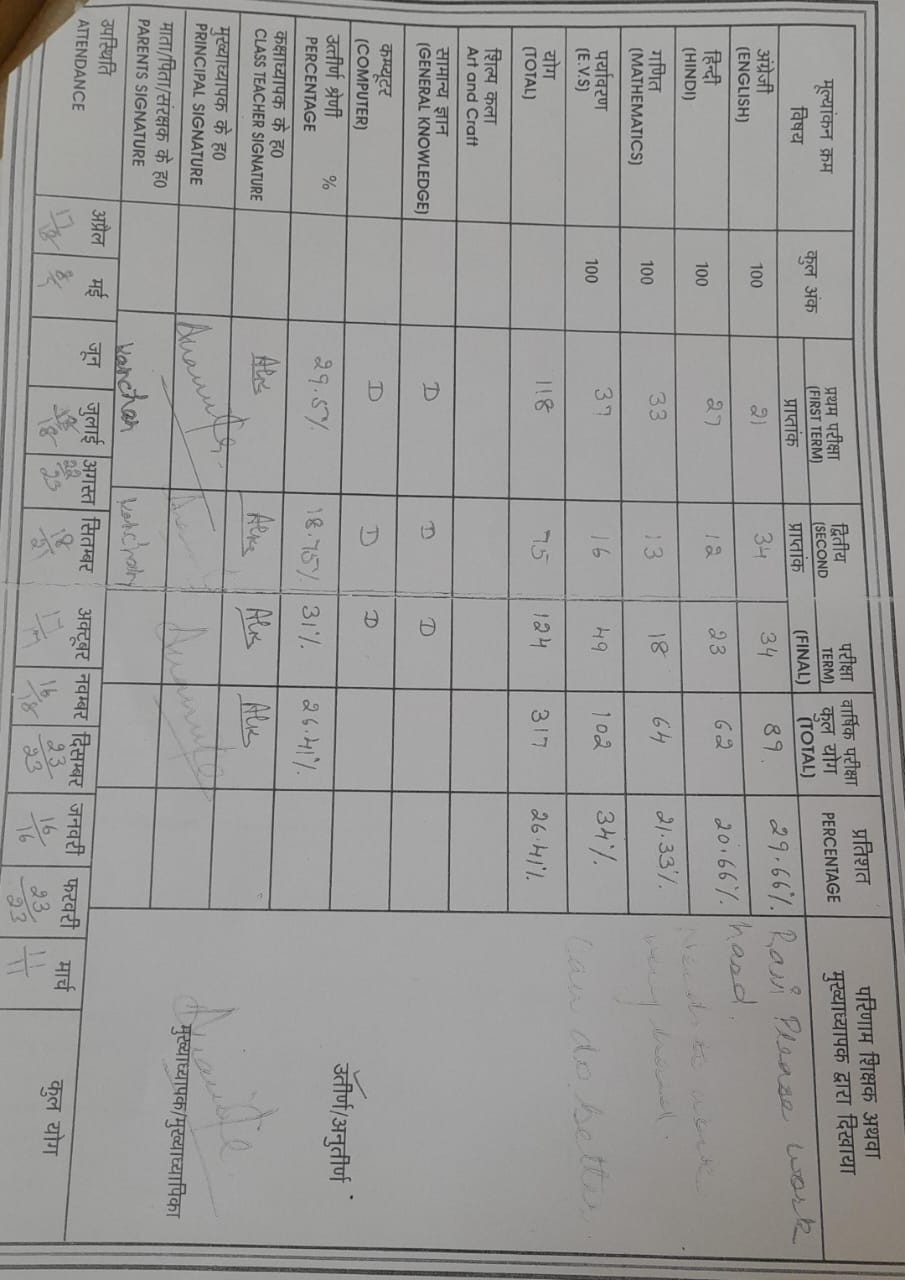 मूल्यांकन क्रम
विषय
कुल अंक
प्रथम परीक्षा
(FIRST TERM)
प्राप्तांक
द्वितीय
(SECOND
प्राप्तांक
परीक्षा
TERM)
(FINAL)
वार्षिक परीक्षा
कुल योग
(TOTAL)
प्रतिशत
PERCENTAGE
परिणाम शिक्षक अथवा
मुख्याध्यापक द्वारा दिखाया
अंग्रेजी
(ENGLISH)
100 21 34 34 89. 29.66%.
हिन्दी
(HINDI)
100 27 12 23 62 20.66%
गणित
(MATHEMATICS)
100 33 13 18 64 21.33%
पर्यावरण
(E.V.S)
100 37 16 49 102 34%
योग
(TOTAL)
118 75 124 317 26.41%
शिल्प कला
Art and Craft
सामान्य ज्ञान
(GENERAL KNOWLEDGE)
D D D
कम्प्यूटर
(COMPUTER)
D D D
उत्तीर्ण श्रेणी %
PERCENTAGE
29.5% 18.75% 31% 26.41%
कक्षाध्यापक के ह0
CLASS TEACHER SIGNATURE
मुख्याध्यापक के ह0
PRINCIPAL SIGNATURE
माता/पिता/संरक्षक के ह0
PARENTS SIGNATURE
Kanchan
Ravi Please work
hard.
very hard.
can do better
उत्तीर्ण/अनुतीर्ण
मुख्याध्यापक/मुख्याध्यापिका
उपस्थिति
ATTENDANCE
अप्रैल मई जून जुलाई अगस्त सितम्बर अक्टूबर नवम्बर दिसम्बर जनवरी फरवरी मार्च कुल योग
17/18 16/18 23/23 16/16 23/23 11/11